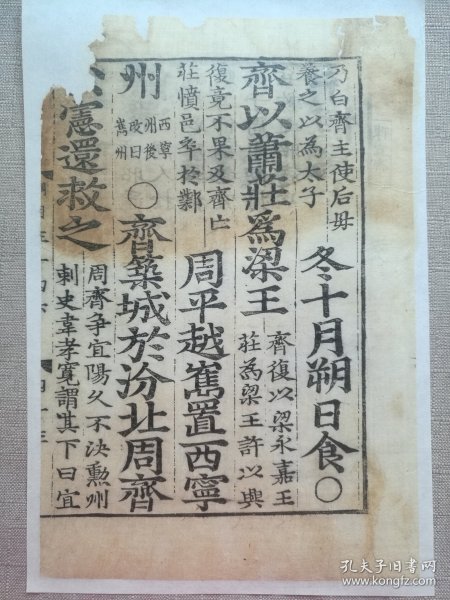 乃白齊主使后毋
養之以為太子
冬十月朔日食〇
齊以蕭莊爲梁王
齊復以梁永嘉王
莊為梁王許以興
復竟不果及齊亡
莊憤邑卒於鄴
周平越嶲置西寧
州
西寧
州後
改曰
嶲州
〇齊築城於汾北周齊
憲還救之
周齊争宜陽久不決勲州
刺史韋孝寛謂其下曰宜
孔夫子旧书网
www.kongfz.com